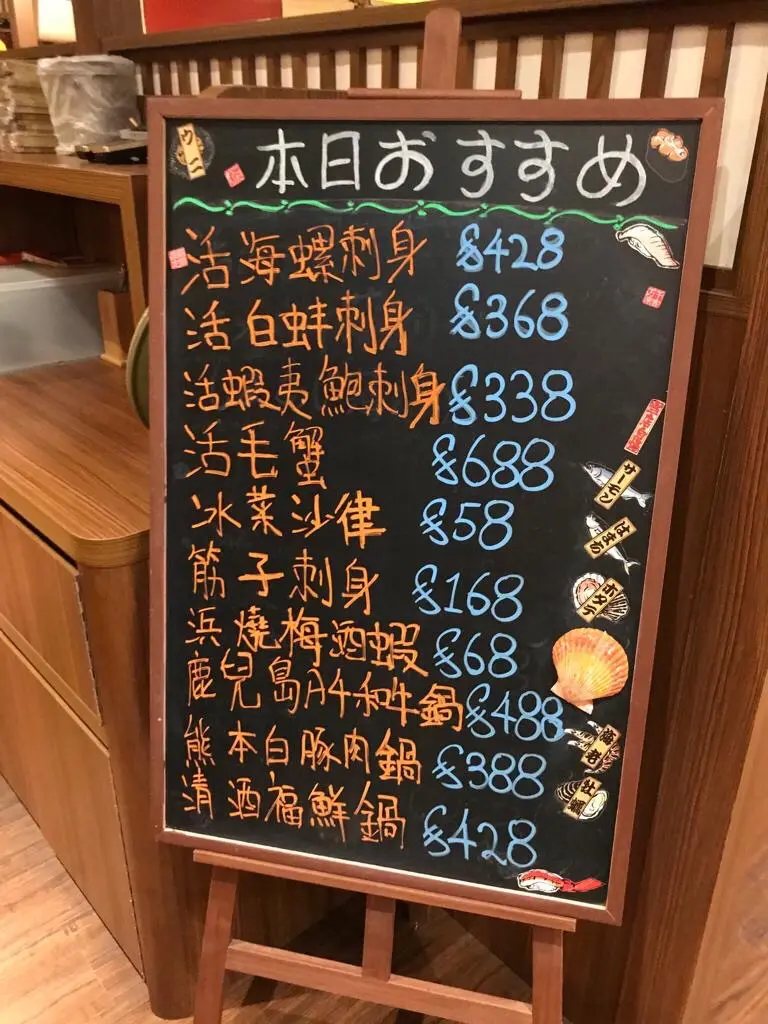 ウニ
本日おすすめ
活海螺刺身 $428
活白蚌刺身 $368
活蝦夷鮑刺身 $338
活毛蟹 $688
冰菜沙律 $58
筋子刺身 $168
浜燒梅酒蝦 $68
鹿兒島A4和牛鍋 $488
熊本白豚肉鍋 $388
清酒福鮮鍋 $428
サーモン
はまち
ホタテ
牡蠣